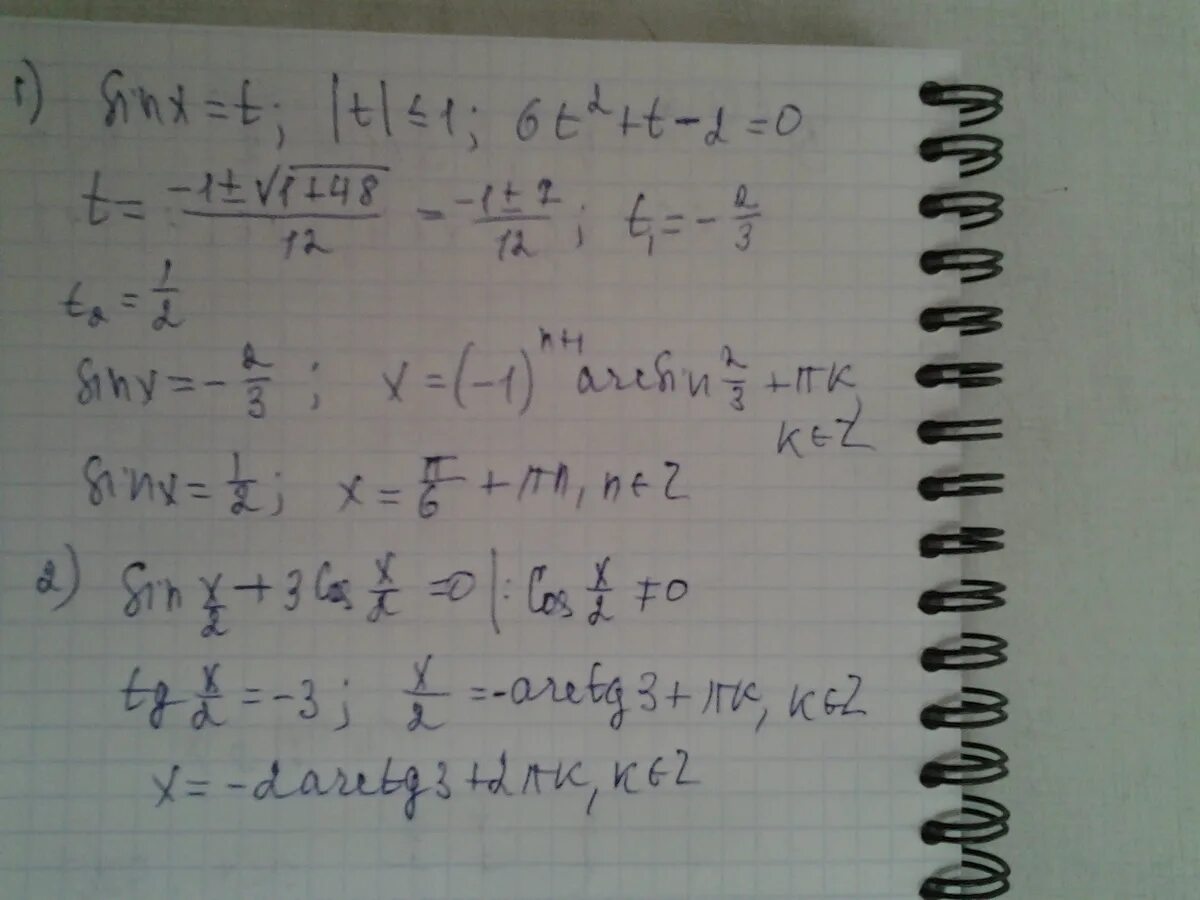 1) sin x = t; |t| ≤ 1; 6t² + t - 2 = 0
t = (-1 ± √(1+48))/12 = (-1 ± 7)/12; t₁ = -2/3
t₂ = 1/2
sin x = -2/3; x = (-1)ⁿ⁺¹ arcsin 2/3 + πk,
k ∈ Z
sin x = 1/2; x = π/6 + πn, n ∈ Z
2) sin x/2 + 3 cos x/2 = 0 | : cos x/2 ≠ 0
tg x/2 = -3; x/2 = -arctg 3 + πk, k ∈ Z
x = -2 arctg 3 + 2πk, k ∈ Z